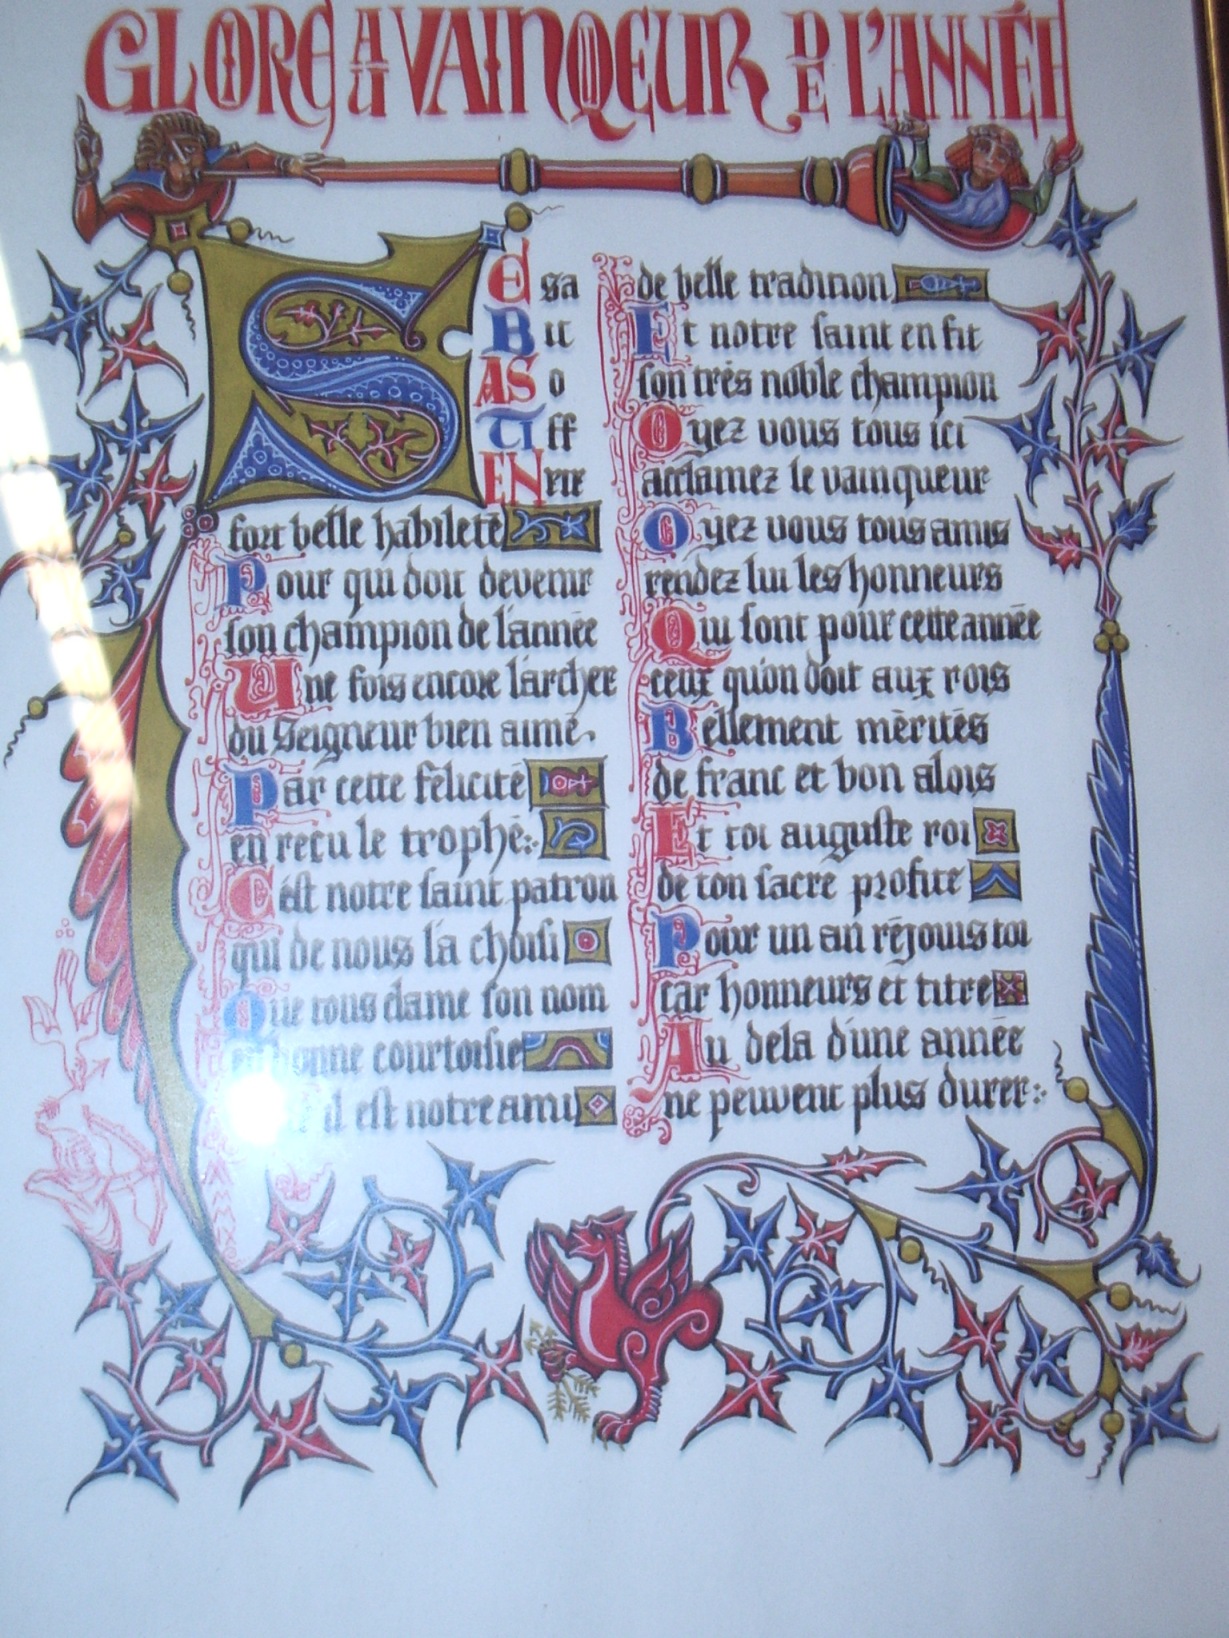 GLOIRE AU VAINQUEUR DE L'ANNÉE
S
E sa
B it
AS o
TI ff
EN rir
fort belle habileté
Pour qui doit devenir
son champion de l'année
Une fois encore l'archer
du Seigneur bien aimé
Par cette félicité
en reçu le trophé:
C'est notre saint patron
qui de nous l'a choisi
Que tous clame son nom
en bonne courtoisie
il est notre ami
de belle tradition
Et notre saint en fit
son très noble champion
Oyez vous tous ici
acclamez le vainqueur
Oyez vous tous amis
rendez lui les honneurs
Qui sont pour cette année
ceux qu'on doit aux rois
Bellement mérités
de franc et bon alois
Et toi auguste roi
de ton sacre profite
Pour un an réjouis toi
car honneurs et titre
Au dela d'une année
ne peuvent plus durer: